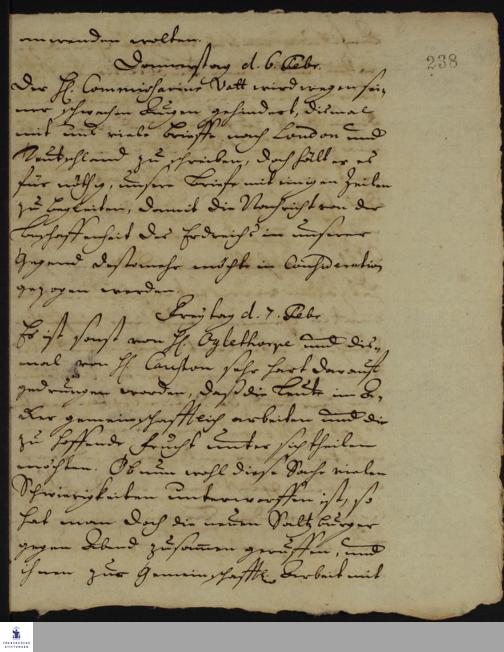 anwenden wolten.
Donnerstag d. 6. Febr.
238
Der H. Commissarius Vatt wird wegen sei-
ner schwachen Augen gehindert, dismal
mit uns viele Brieffe nach London und
Teutschland zu schreiben, doch hält er es
für nöthig, unsere Briefe mit einigen Zeilen
zu begleiten, damit die Nachricht von der
Beschaffenheit des Erdreichs in unserer
Gegend destomehr möchte in Consideration
gezogen werden.
Freytag d. 7. Febr.
Es ist sonst von H. Oglethorpe und dis-
mal von H. Causton sehr hart darauf
gedrungen worden, daß die Leute im A-
cker gemeinschafftlich arbeiten und die
zu hoffende Frucht unter sich theilen
möchten. Ob nun wohl diese Sache vielen
Schwierigkeiten unterworffen ist, so
hat man doch die neuen Saltzburger
gegen Abend zusammen geruffen, und
ihnen zur Gemeinschafftl. Arbeit mit
FRANCKESCHE
STIFTUNGEN